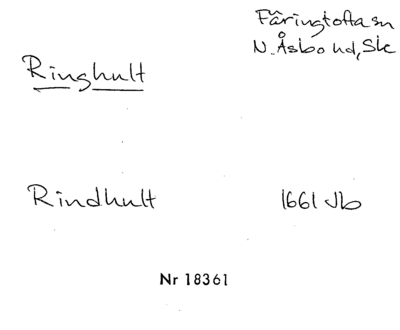 Färingtofta sn
N. Åsbo hd, Sk
Ringhult
Rindhult
1661 Jb
Nr 18361